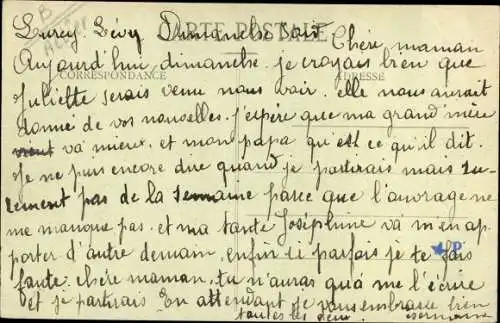 Lurcy Lévy Dimanche soir
CARTE POSTALE
Chère maman
Aujourd'hui dimanche je croyais bien que
CORRESPONDANCE
ADRESSE
Juliette serais venu nous voir. elle nous aurait
donné de vos nouvelles. j'espère que ma grand'mère
vient va mieux. et mon papa qu'est ce qu'il dit.
Je ne puis encore dire quand je partirais mais su-
rement pas de la semaine parce que l'ouvrage ne
me manque pas. et ma tante Joséphine va m'en ap-
porter d'autre demain, enfin si parfois je te fais
faute. chère maman, tu n'auras qu'a me l'écrire
et je partirais. En attendant je vous embrasse bien
toutes les deux. Germaine